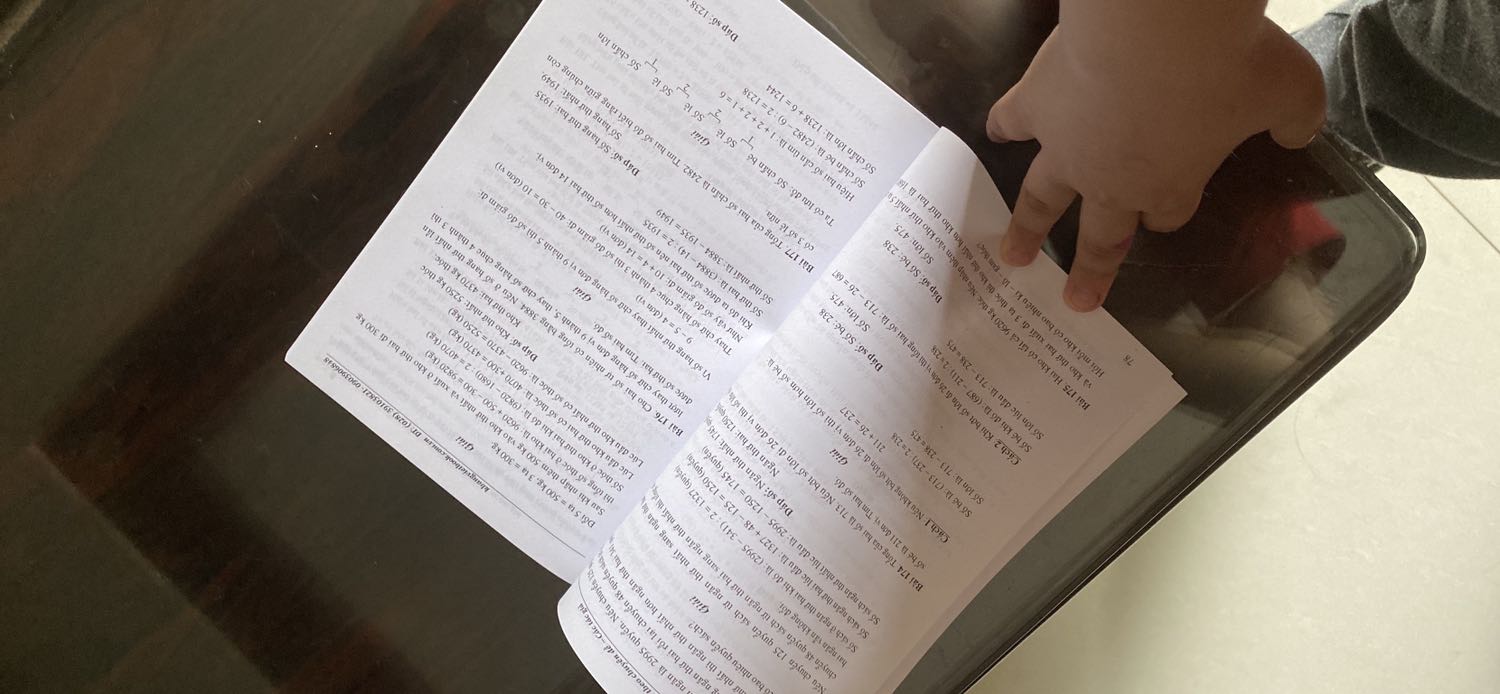 theo chuyên đề – Các tác giả
ngăn là 2995 quyển. Nếu chuyển
thứ hai rồi lại chuyển 48 quyển
thứ nhất hơn ngăn thứ hai
có bao nhiêu quyển sách?
Giải
Nếu chuyển 125 quyển sách từ ngăn thứ nhất sang ngăn
chuyển 48 quyển sách từ ngăn thứ hai sang ngăn thứ nhất thì tổng
hai ngăn vẫn không đổi.
Số sách ở ngăn thứ hai khi đó là: (2995 – 341) : 2 = 1327 (quyển)
Số sách ngăn thứ hai lúc đầu là: 1327 + 48 – 125 = 1250 (quyển)
Số sách ngăn thứ nhất lúc đầu là: 2995 – 1250 = 1745 (quyển)
Đáp số: Ngăn thứ nhất: 1745 quyển
Ngăn thứ hai: 1250
Bài 174 Tổng của hai số là 713. Nếu bớt số lớn đi 26 đơn vị thì số lớn hơn
số bé là 211 đơn vị. Tìm hai số đó.
Giải
Cách 1 Nếu không bớt số lớn đi 26 đơn vị thì số lớn hơn số bé là:
211 + 26 = 237
Số bé là: (713 – 237) : 2 = 238
Số lớn là: 713 – 238 = 475
Đáp số: Số bé: 238
Số lớn: 475
Cách 2 Khi bớt số lớn đi 26 đơn vị thì tổng hai số là: 713 – 26 = 687
Số bé khi đó là: (687 – 211) : 2 = 238
Số lớn lúc đầu là: 713 – 238 = 475
Đáp số: Số bé: 238
Số lớn: 475
Bài 175 Hai kho có tất cả 9620 kg thóc. Nếu nhập thêm vào kho thứ nhất 5 tạ
và kho thứ hai xuất đi 3 tạ thóc thì kho thứ nhất hơn kho thứ hai là
Hỏi mỗi kho có bao nhiêu ki – lô – gam thóc?
78
khangvietbook.com.vn – ĐT: (028) 39103821 – 0903906848
Giải
Đổi 5 tạ = 500 kg, 3 tạ = 300 kg.
Sau khi nhập thêm 500 kg vào kho thứ nhất và xuất ở kho thứ hai đi 300 kg
thì tổng số thóc ở hai kho là: 9620 + 500 – 300 = 9820 (kg)
Số thóc ở kho thứ hai khi đó là: (9820 – 1680) : 2 = 4070 (kg)
Lúc đầu kho thứ hai có số thóc là: 4070 + 300 = 4370 (kg)
Lúc đầu kho thứ nhất có số thóc là: 9620 – 4370 = 5250 (kg)
Đáp số: Kho thứ nhất: 5250 kg thóc
Kho thứ hai: 4370 kg thóc
Bài 176 Cho hai số tự nhiên có tổng bằng 3884. Nếu ở số hạng thứ nhất lần
lượt thay chữ số hàng đơn vị 9 thành 5, thay chữ số hàng chục 4 thành 3 thì
được số thứ hai. Tìm hai số đó.
Giải
Vì số hạng thứ nhất thay chữ số hàng đơn vị 9 thành 5 thì số đó giảm đi:
9 – 5 = 4 (đơn vị)
Thay chữ số hàng chục 4 thành 3 thì số đó giảm đi: 40 – 30 = 10 (đơn vị)
Như vậy số đó giảm đi: 10 + 4 = 14 (đơn vị)
Khi đó ta được số thứ hai nên số thứ nhất hơn số thứ hai 14 đơn vị.
Số thứ hai là: (3884 – 14) : 2 = 1935
Số thứ nhất là: 3884 – 1935 = 1949
Đáp số: Số hạng thứ hai: 1935
Số hạng thứ nhất: 1949
Bài 177 Tổng của hai số chẵn là 2482. Tìm hai số đó biết rằng giữa chúng còn
có 3 số lẻ nữa.
Giải
Ta có lưu đồ: Số chẵn bé 1 Số lẻ 2 Số lẻ 2 Số lẻ 1 Số chẵn lớn
Hiệu hai số cần tìm là: 1 + 2 + 2 + 1 = 6
Số chẵn bé là: (2482 – 6) : 2 = 1238
Số chẵn lớn là: 1238 + 6 = 1244
Đáp số: 1238